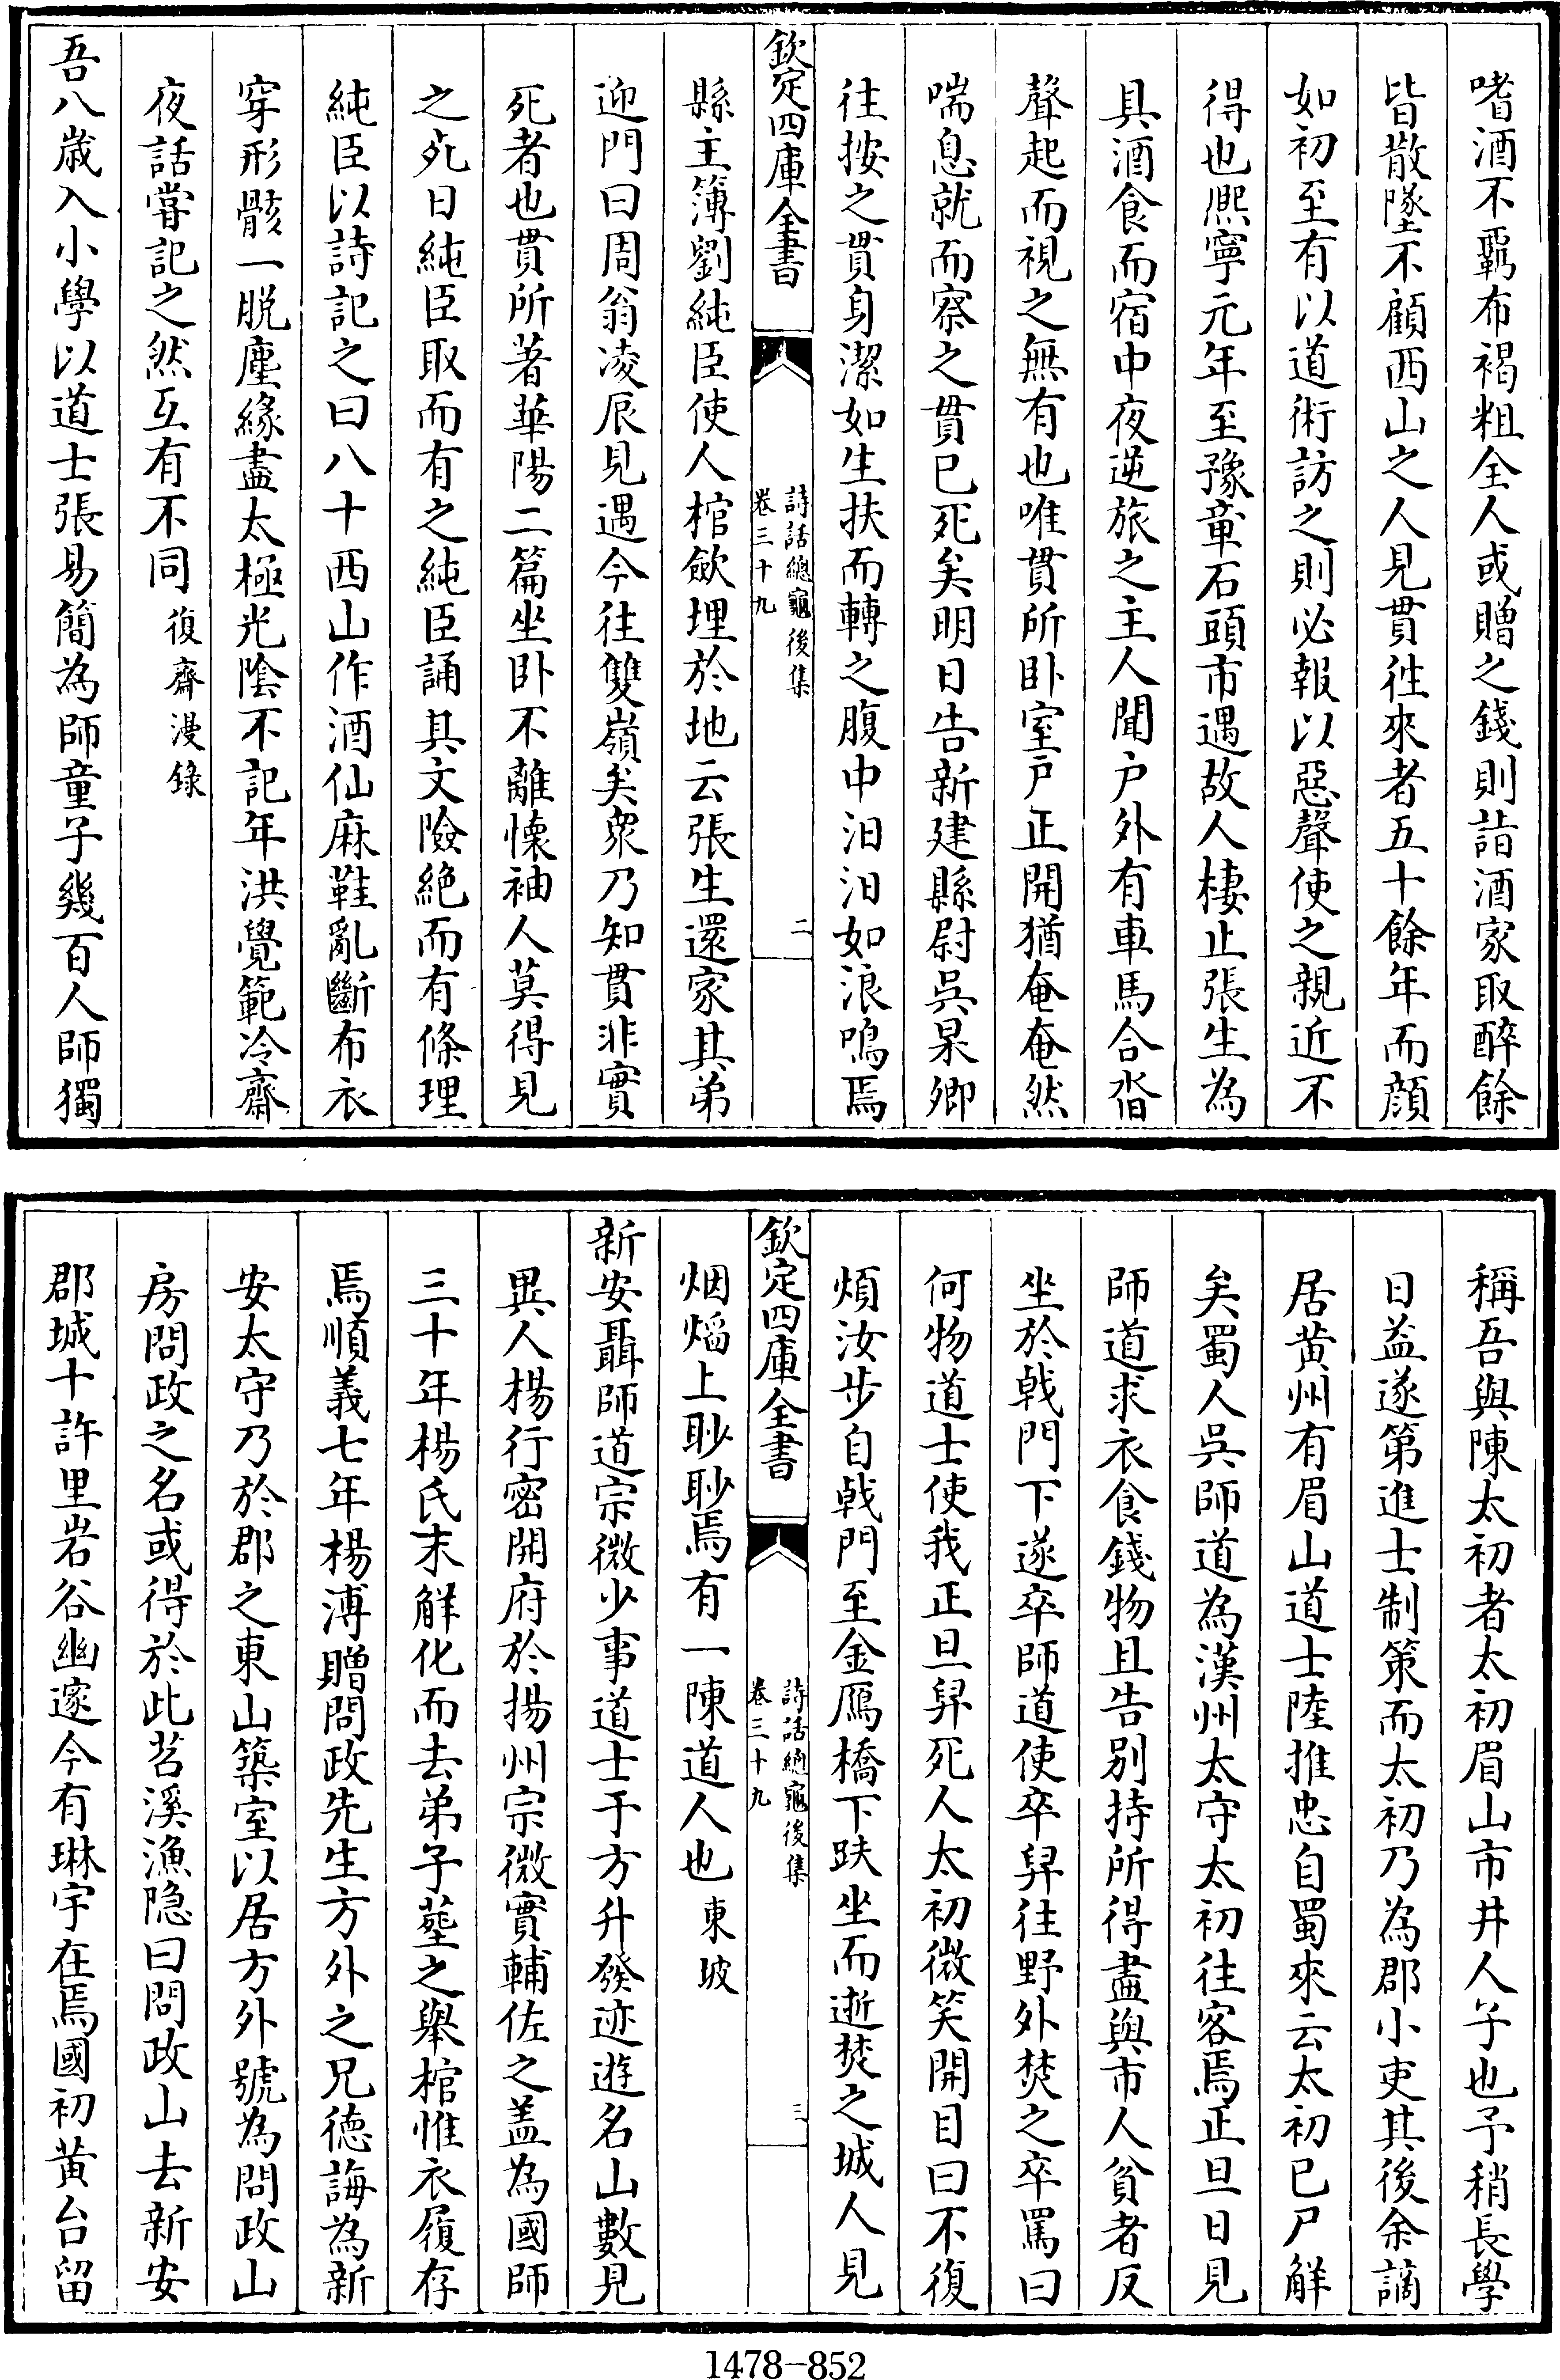 嗜酒不羈布褐粗全人或贈之錢則詣酒家取醉餘
皆散墜不顧西山之人見貫徃來者五十餘年而顔
如初至有以道術訪之則必報以惡聲使之親近不
得也熈寧元年至豫章石頭市遇故人棲止張生為
具酒食而宿中夜逆旅之主人聞户外有車馬合沓
聲起而視之無有也唯貫所卧室户正開猶奄奄然
喘息就而察之貫已死矣明日告新建縣尉吳杲卿
往按之貫身潔如生扶而轉之腹中汩汩如浪鳴焉
欽定四庫全書
詩話總龜後集
卷三十九
二
縣主簿劉純臣使人棺歛埋於地云張生還家其弟
迎門曰周翁凌辰見過今往雙嶺矣衆乃知貫非實
死者也貫所著華陽二篇坐卧不離懐袖人莫得見
之死日純臣取而有之純臣誦其文險絶而有條理
純臣以詩記之曰八十西山作酒仙麻鞋亂斷布衣
穿形骸一脱塵緣盡太極光陰不記年洪覺範冷齋
夜話嘗記之然互有不同復齋漫錄
吾八歲入小學以道士張易簡為師童子幾百人師獨
稱吾與陳太初者太初眉山市井人子也予稍長學
日益遂第進士制策而太初乃為郡小吏其後余謫
居黄州有眉山道士陸推忠自蜀來云太初已尸解
矣蜀人吳師道為漢州太守太初往客焉正旦日見
師道求衣食錢物且告别持所得盡與市人貧者反
坐於戟門下遂卒師道使卒舁往野外焚之卒罵曰
何物道士使我正旦舁死人太初微笑開目曰不復
煩汝步自戟門至金鴈橋下趺坐而逝焚之城人見
欽定四庫全書
詩話總龜後集
卷三十九
三
烟熖上眇眇焉有一陳道人也東坡
新安聶師道宗微少事道士于方升發迹遊名山數見
異人楊行密開府於揚州宗微實輔佐之盖為國師
三十年楊氏末解化而去弟子塟之舉棺惟衣履存
焉順義七年楊溥贈問政先生方外之兄德誨為新
安太守乃於郡之東山築室以居方外號為問政山
房問政之名或得於此苕溪漁隐曰問政山去新安
郡城十許里岩谷幽邃今有琳宇在焉國初黄台留
1478-852